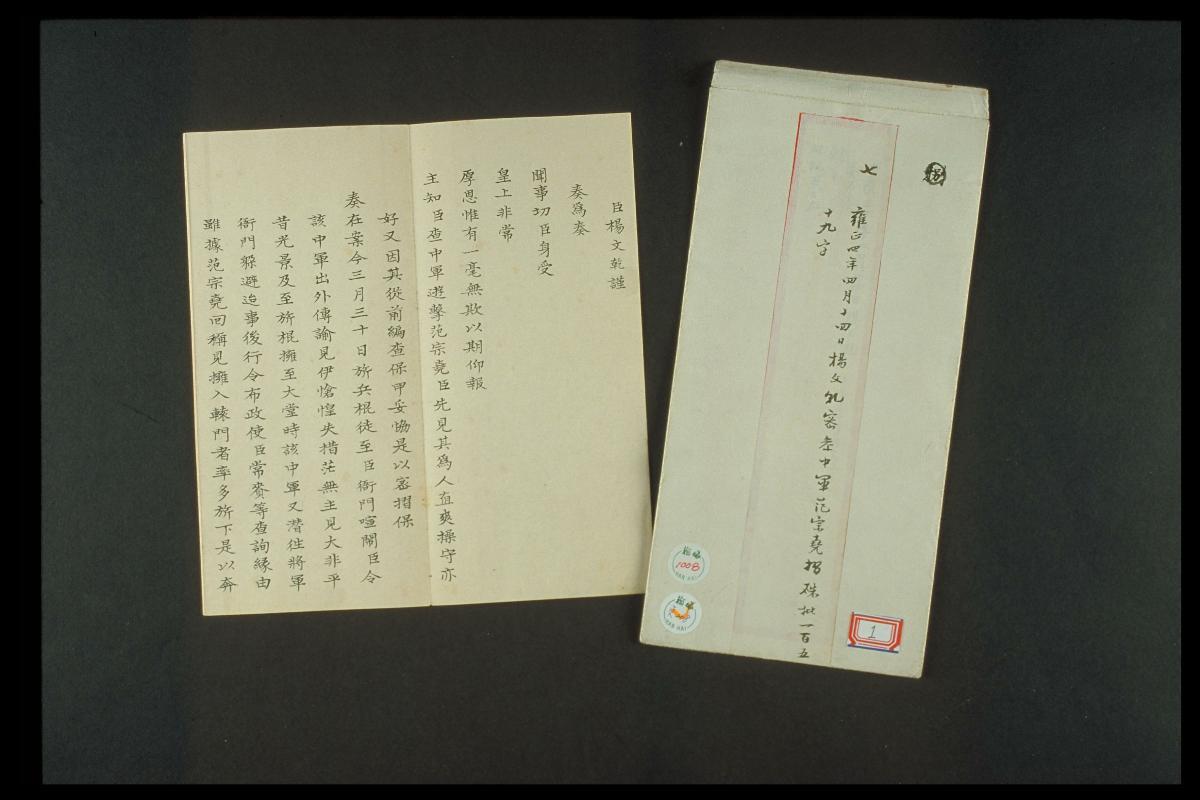 臣楊文乾謹
奏為奏
聞事切臣身受
皇上非常
厚恩惟有一毫無欺以期仰報
主知臣查中軍遊擊范宗堯臣先見其為人直爽操守亦
好又因其從前編查保甲妥協是以密摺保
奏在案今三月三十日旂兵棍徒至臣衙門喧鬧臣令
該中軍出外傳諭見伊愴惶失措茫無主見大非平
昔光景及至旂棍擁至大堂時該中軍又潛往將軍
衙門躲避迨事後行令布政使臣常賚等查詢緣由
雖據范宗堯回稱見擁入轅門者率多旂下是以奔
七
雍正四年四月十四日楊文乹密參中軍范宗堯摺硃批一百五
十九字
1
瀚海
1008
HAN HAI
瀚海
HAN HAI